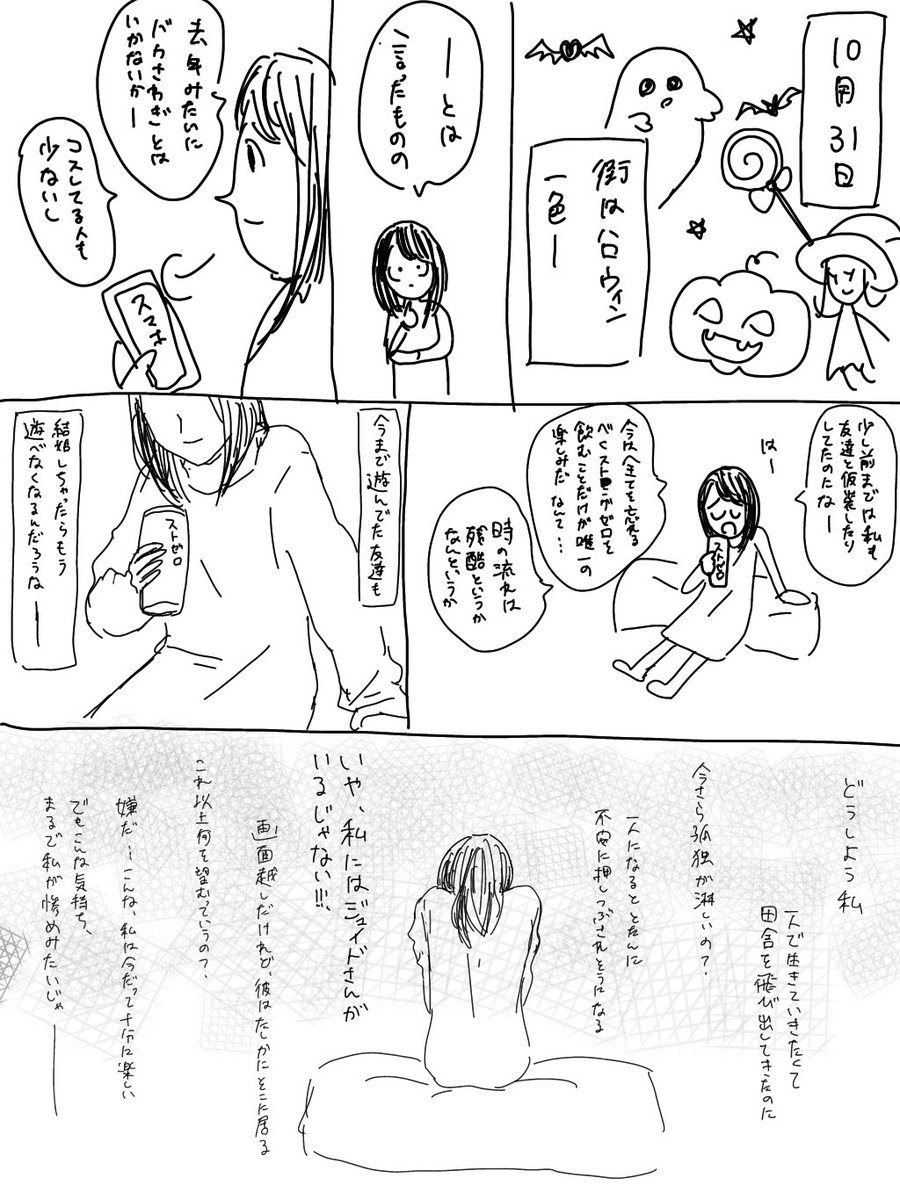 10月31日
街はハロウィン
一色ー
ーとは
言ったものの
去年みたいに
バカさわぎとは
いかないかー
コスしてる人も
少ないし
スマホ
少し前までは私も
友達と仮装したり
してたのになー
はー
今は全てを忘れる
べくストロングゼロを
飲むことだけが唯一の
楽しみだなんて…
時の流れは
残酷というか
なんというか
ストゼロ
今まで遊んでた友達も
ストゼロ
結婚しちゃったらもう
遊べなくなるんだろうな
ー
どうしよう私
一人で生きていきたくて
田舎を飛び出してきたのに
今さら孤独が淋しいの?
一人になるととたんに
不安に押しつぶされそうになる
いや、私にはジェイドさんが
いるじゃない!!!、
画面越しだけれど、彼はたしかにそこに居る
これ以上何を望むっていうの?、
嫌だ…こんな、私は今だって十分に楽しい
でもこんな気持ち、
まるで私が惨めみたいじゃ――